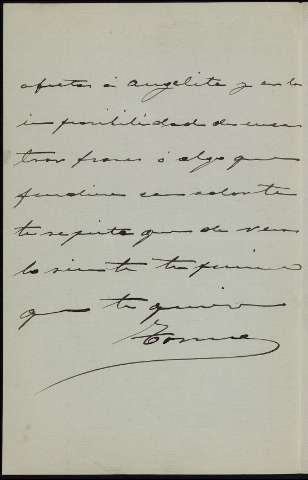 afectos á Angelita y en la
imposibilidad de encon
trar frases ó algo que
pudiera consolarte
te repito que de veras
lo siente tu primo
que te quiere